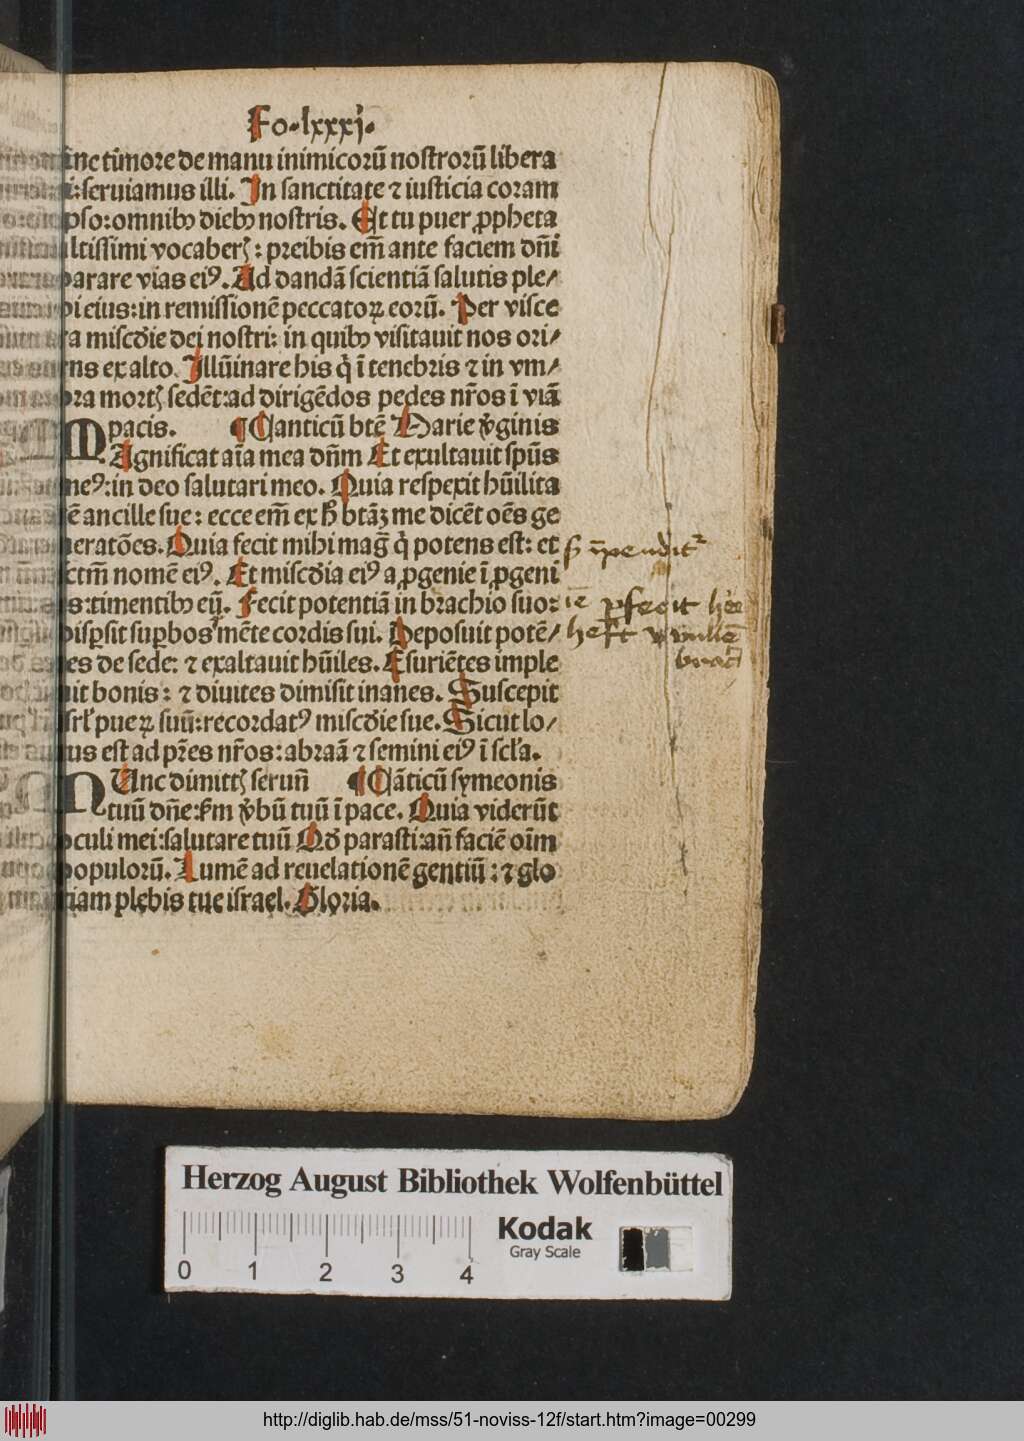 Fo.lxxxj.
ine timore de manu inimicorū nostrorū libera
i:seruiamus illi. In sanctitate ⁊ iusticia coram
pso:omnibꝰ diebꝰ nostris. Et tu puer ꝓpheta
ltissimi vocaberꝭ: preibis em̄ ante faciem dn̄i
parare vias eiꝰ. Ad dandā scientiā salutis ple/
bi eius:in remissionē peccatoꝝ eorū. Per visce
ra misc̄die dei nostri: in quibꝰ visitauit nos ori/
ens ex alto. Illūinare his q̇ ī tenebris ⁊ in vm/
bra mortꝭ sedēt:ad dirigēdos pedes nr̄os ī viā
pacis. ¶ Canticū btē Marie v̇ginis
MAgnificat aīa mea dn̄m Et exultauit spūs
meꝰ:in deo salutari meo. Quia respexit hūilita
tē ancille sue: ecce em̄ ex h̄ btāꝫ me dicēt oēs ge
neratōes. Quia fecit mihi maḡ q̇ potens est: et
sctm̄ nomē eiꝰ. Et misc̄dia eiꝰ a ꝓgenie ī ꝓgeni
es:timentibꝰ eū. Fecit potentiā in brachio suo:
disꝑsit suꝑbos mēte cordis sui. Deposuit potē/
tes de sede: ⁊ exaltauit hūiles. Esuriētes imple
uit bonis: ⁊ diuites dimisit inanes. Suscepit
isrl̄ pueꝝ suū:recordatꝰ misc̄die sue. Sicut lo/
cutus est ad pr̄es nr̄os:abraā ⁊ semini eiꝰ ī scl̄a.
NUnc dimittꝭ seruū ¶ Cāticū symeonis
tuū dn̄e:scd̄m v̇bū tuū ī pace. Quia viderūt
oculi mei:salutare tuū Qd̄ parasti:an̄ faciē oīm
populorū. Lumē ad reuelationē gentiū: ⁊ glo
riam plebis tue israel. Gloria.
Herzog August Bibliothek Wolfenbüttel
Kodak
Gray Scale
0 1 2 3 4
http://diglib.hab.de/mss/51-noviss-12f/start.htm?image=00299